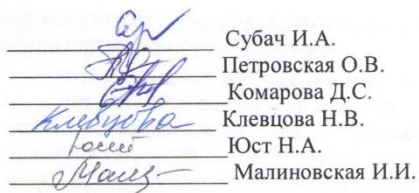 Субач И.А.
Петровская О.В.
Комарова Д.С.
Клевцова Клевцова Н.В.
Юст Н.А.
Малиновская И.И.